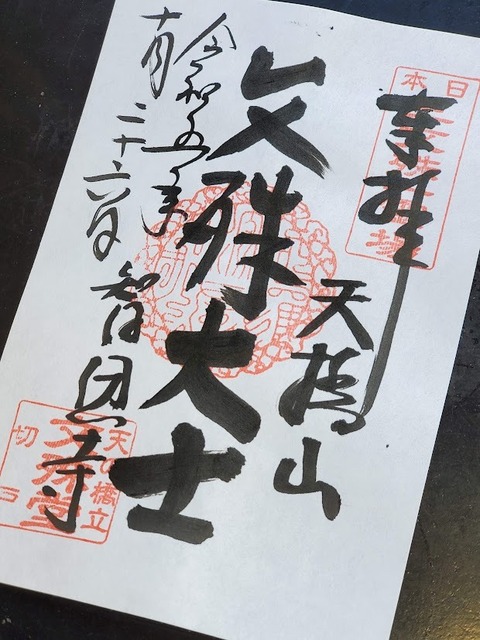 奉拝
天橋山
文殊大士
令和五年
十月二十六日
智恩寺
日本
天の橋立
文殊堂
切戸